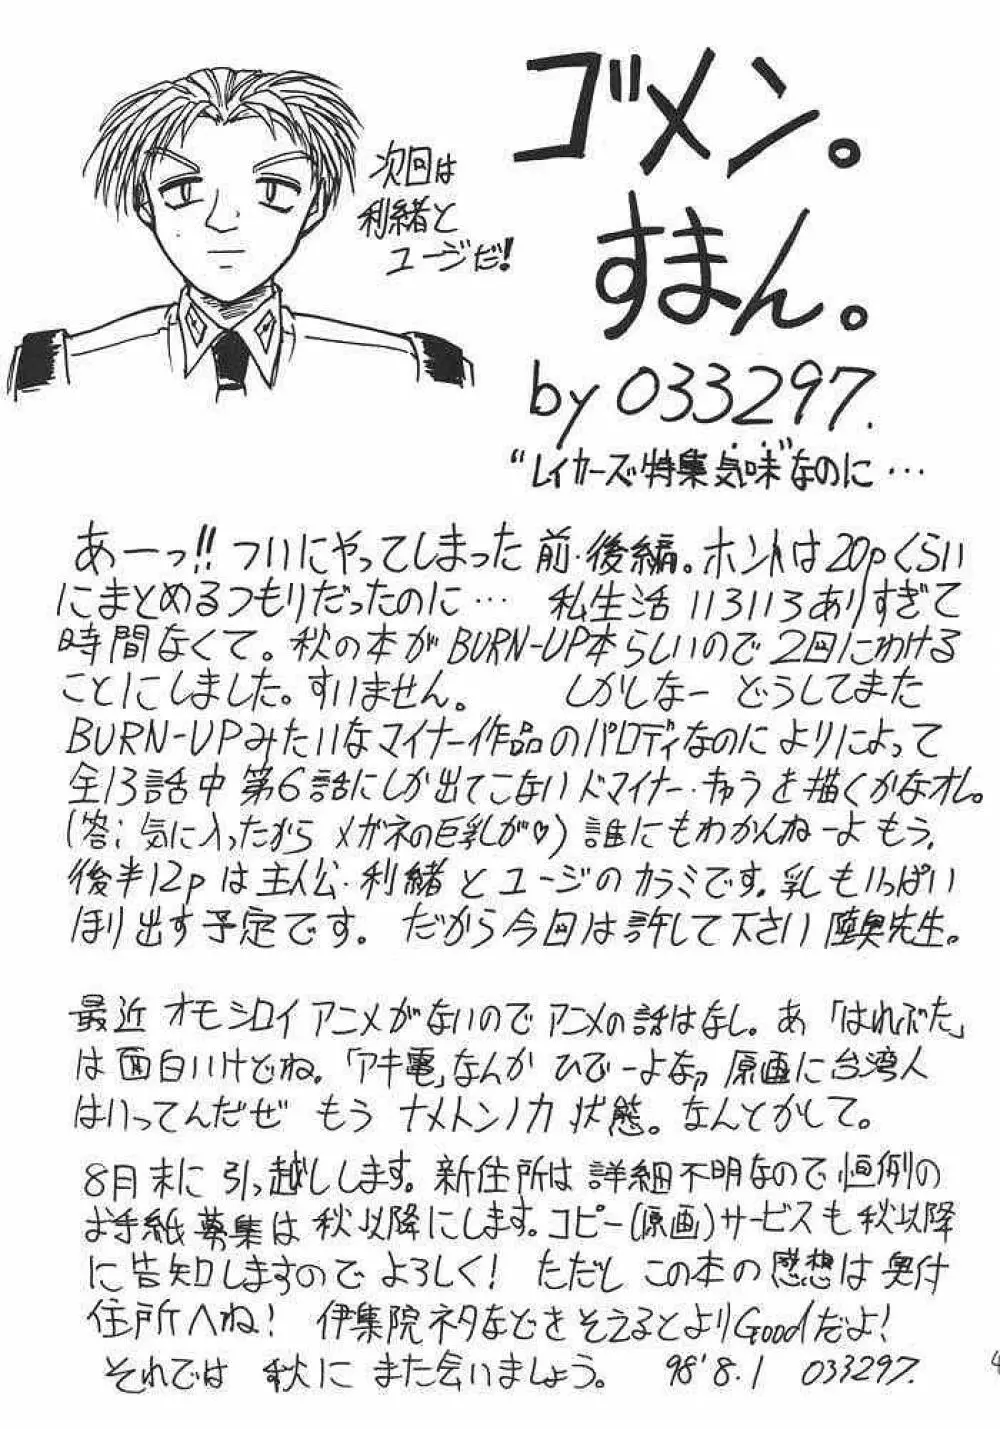 ゴメン。
すまん。
次回は
利緒と
ユージだ!
by 033297.
“レイカーズ特集気味”なのに…
あーっ!!ついにやってしまった前・後編。ホントは20pくらい
にまとめるつもりだったのに… 私生活いろいろありすぎて
時間なくて。秋の本がBURN-UP本らしいので2回にわける
ことにしました。すいません。 しかしなー どうしてまた
BURN-UPみたいなマイナー作品のパロディなのによりによって
全13話中第6話にしか出てこないドマイナー・キャラを描くかなオレ。
(答;気に入ったから メガネの巨乳が♡)誰にもわかんねーよもう。
後半12pは主人公・利緒とユージのカラミです。乳もいっぱい
ほり出す予定です。 だから今回は許して下さい陸奥先生。
最近オモシロイアニメがないのでアニメの話はなし。あ「はれぶた」
は面白いけどね。「アキ電」なんかひでーよなァ原画に台湾人
はいってんだぜ もうナメトンノカ状態。なんとかして。
8月末に引っ越しします。新住所は詳細不明なので恒例の
お手紙募集は秋以降にします。コピー(原画)サービスも秋以降
に告知しますのでよろしく! ただしこの本の感想は奥付
住所へね! 伊集院ネタなどをそえるとよりGoodだよ!
それでは 秋に また会いましょう。 98'8.1 033297.
4